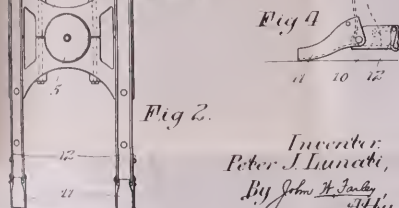 Fig 4
11 10 12
5
Fig 2.
12
11
Inventor.
Peter J. Lunati,
By John W. Farley,